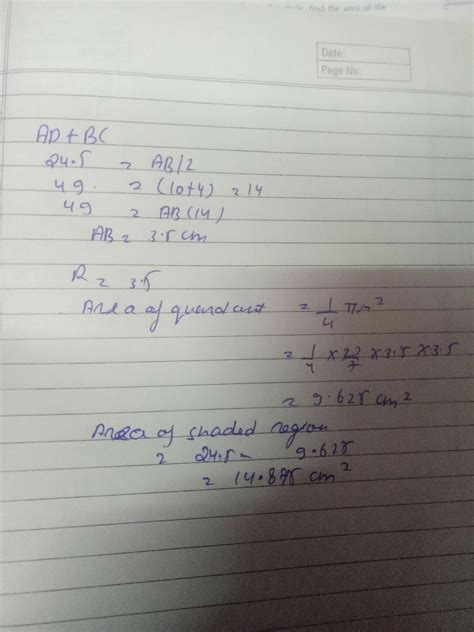 find the area of the
Date:
Page No.
AD + BC
24.5 = AB/2
49. = (10+4) = 14
49 = AB(14)
AB = 3.5 cm
R = 3.5
Area of quardant = 1/4 πr²
= 1/4 × 22/7 × 3.5 × 3.5
= 9.625 cm²
Area of shaded region
= 24.5 - 9.625
= 14.875 cm²